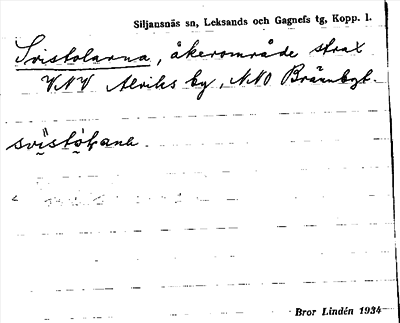 Siljansnäs sn, Leksands och Gagnefs tg, Kopp. l.
Svistolarna, åkerområde strax
VNV Alviks by, NNO Brännbgt.
Bror Lindén 1934